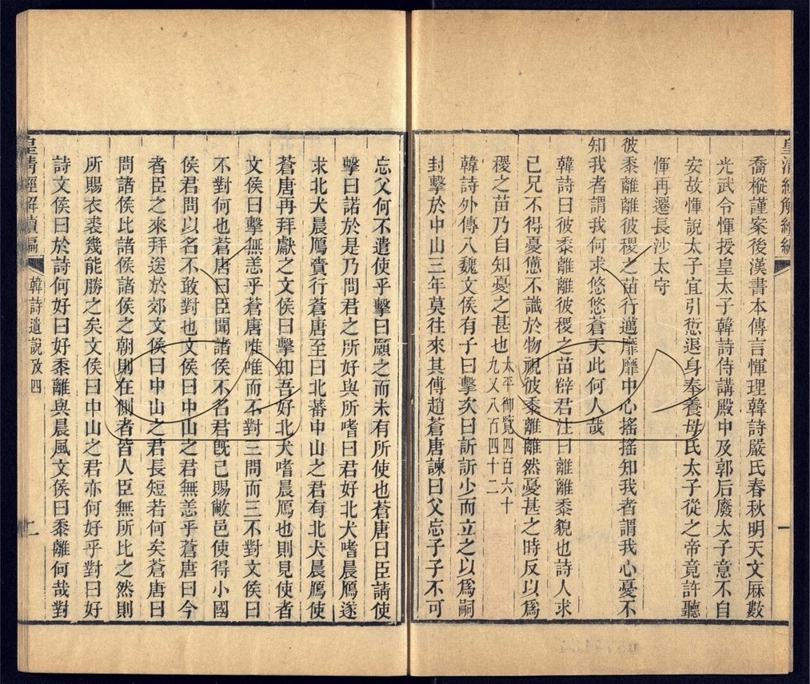 皇清經解續編
喬樅謹案後漢書本傳言惲理韓詩嚴氏春秋明天文厤數
光武令惲授皇太子韓詩侍講殿中及郭后廢太子意不自
安故惲說太子宜引愆退身奉養母氏太子從之帝竟許聽
惲再遷長沙太守
彼黍離離彼稷之苗行邁靡靡中心搖搖知我者謂我心憂不
知我者謂我何求悠悠蒼天此何人哉
韓詩曰彼黍離離彼稷之苗辥君注曰離離黍貌也詩人求
已兄不得憂懣不識於物視彼黍離離然憂甚之時反以爲
稷之苗乃自知憂之甚也太平御覽四百六十
九又八百四十二
韓詩外傳八魏文侯有子曰擊次曰訢訢少而立之以爲嗣
封擊於中山三年莫往來其傅趙蒼唐諫曰父忘子子不可
忘父何不遣使乎擊曰願之而未有所使也蒼唐曰臣請使
擊曰諾於是乃問君之所好與所嗜曰君好北犬嗜晨鴈遂
求北犬晨鴈賫行蒼唐至曰北蕃中山之君有北犬晨鴈使
蒼唐再拜獻之文侯曰擊知吾好北犬嗜晨鴈也則見使者
文侯曰擊無恙乎蒼唐唯唯而不對三問而三不對文侯曰
不對何也蒼唐曰臣聞諸侯不名君旣已賜敝邑使得小國
侯君問以名不敢對也文侯曰中山之君無恙乎蒼唐曰今
者臣之來拜送於郊文侯曰中山之君長短若何矣蒼唐曰
問諸侯比諸侯諸侯之朝則在側者皆人臣無所比之然則
所賜衣裘幾能勝之矣文侯曰中山之君亦何好乎對曰好
詩文侯曰於詩何好曰好黍離與晨風文侯曰黍離何哉對
皇清經解續編
韓詩遺說攷四